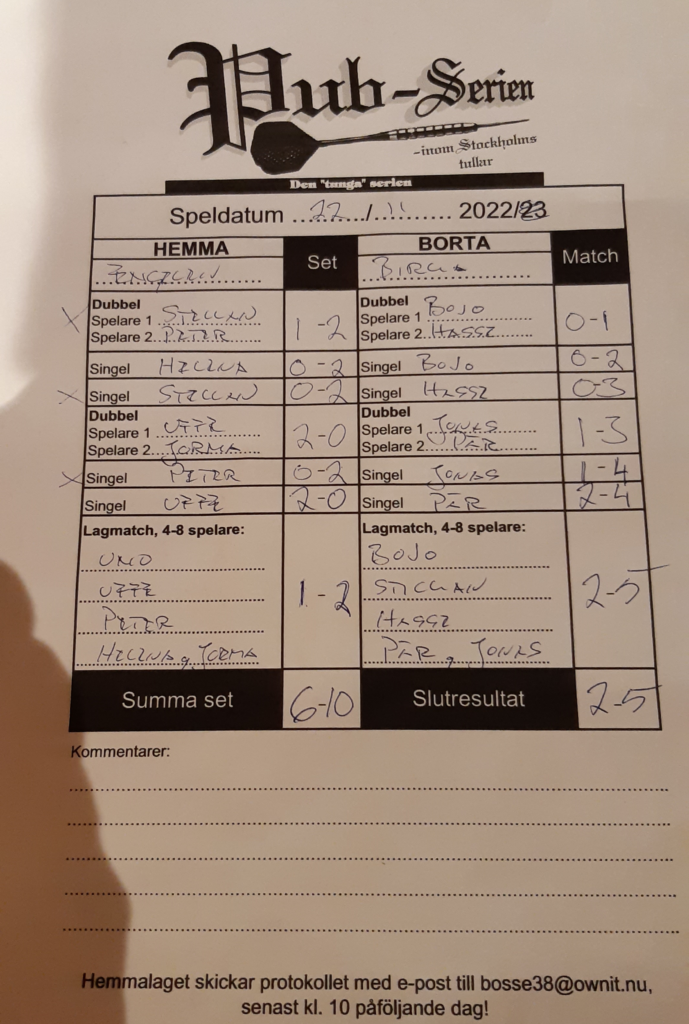 Pub-Serien
-inom Stockholms
tullar
Den "tunga" serien
Speldatum ...22..../..11....... 2022/23
HEMMA Set BORTA Match
BIRKA
Dubbel Dubbel
Spelare 1 STELLAN Spelare 1 BOJO
Spelare 2 PETER 1-2 Spelare 2 HASSE 0-1
Singel HELENA 0-2 Singel BOJO 0-2
Singel STELLAN 0-2 Singel HASSE 0-3
Dubbel Dubbel
Spelare 1 UFFE Spelare 1 JONAS
Spelare 2 JORMA 2-0 Spelare 2 PÄR 1-3
Singel PETER 0-2 Singel JONAS 1-4
Singel UFFE 2-0 Singel PÄR 2-4
Lagmatch, 4-8 spelare: Lagmatch, 4-8 spelare:
UNO BOJO
UFFE STELLAN
1-2 2-5
PETER HASSE
HELENA, JORMA PÄR, JONAS
Summa set 6-10 Slutresultat 2-5
Kommentarer:
Hemmalaget skickar protokollet med e-post till bosse38@ownit.nu,
senast kl. 10 påföljande dag!